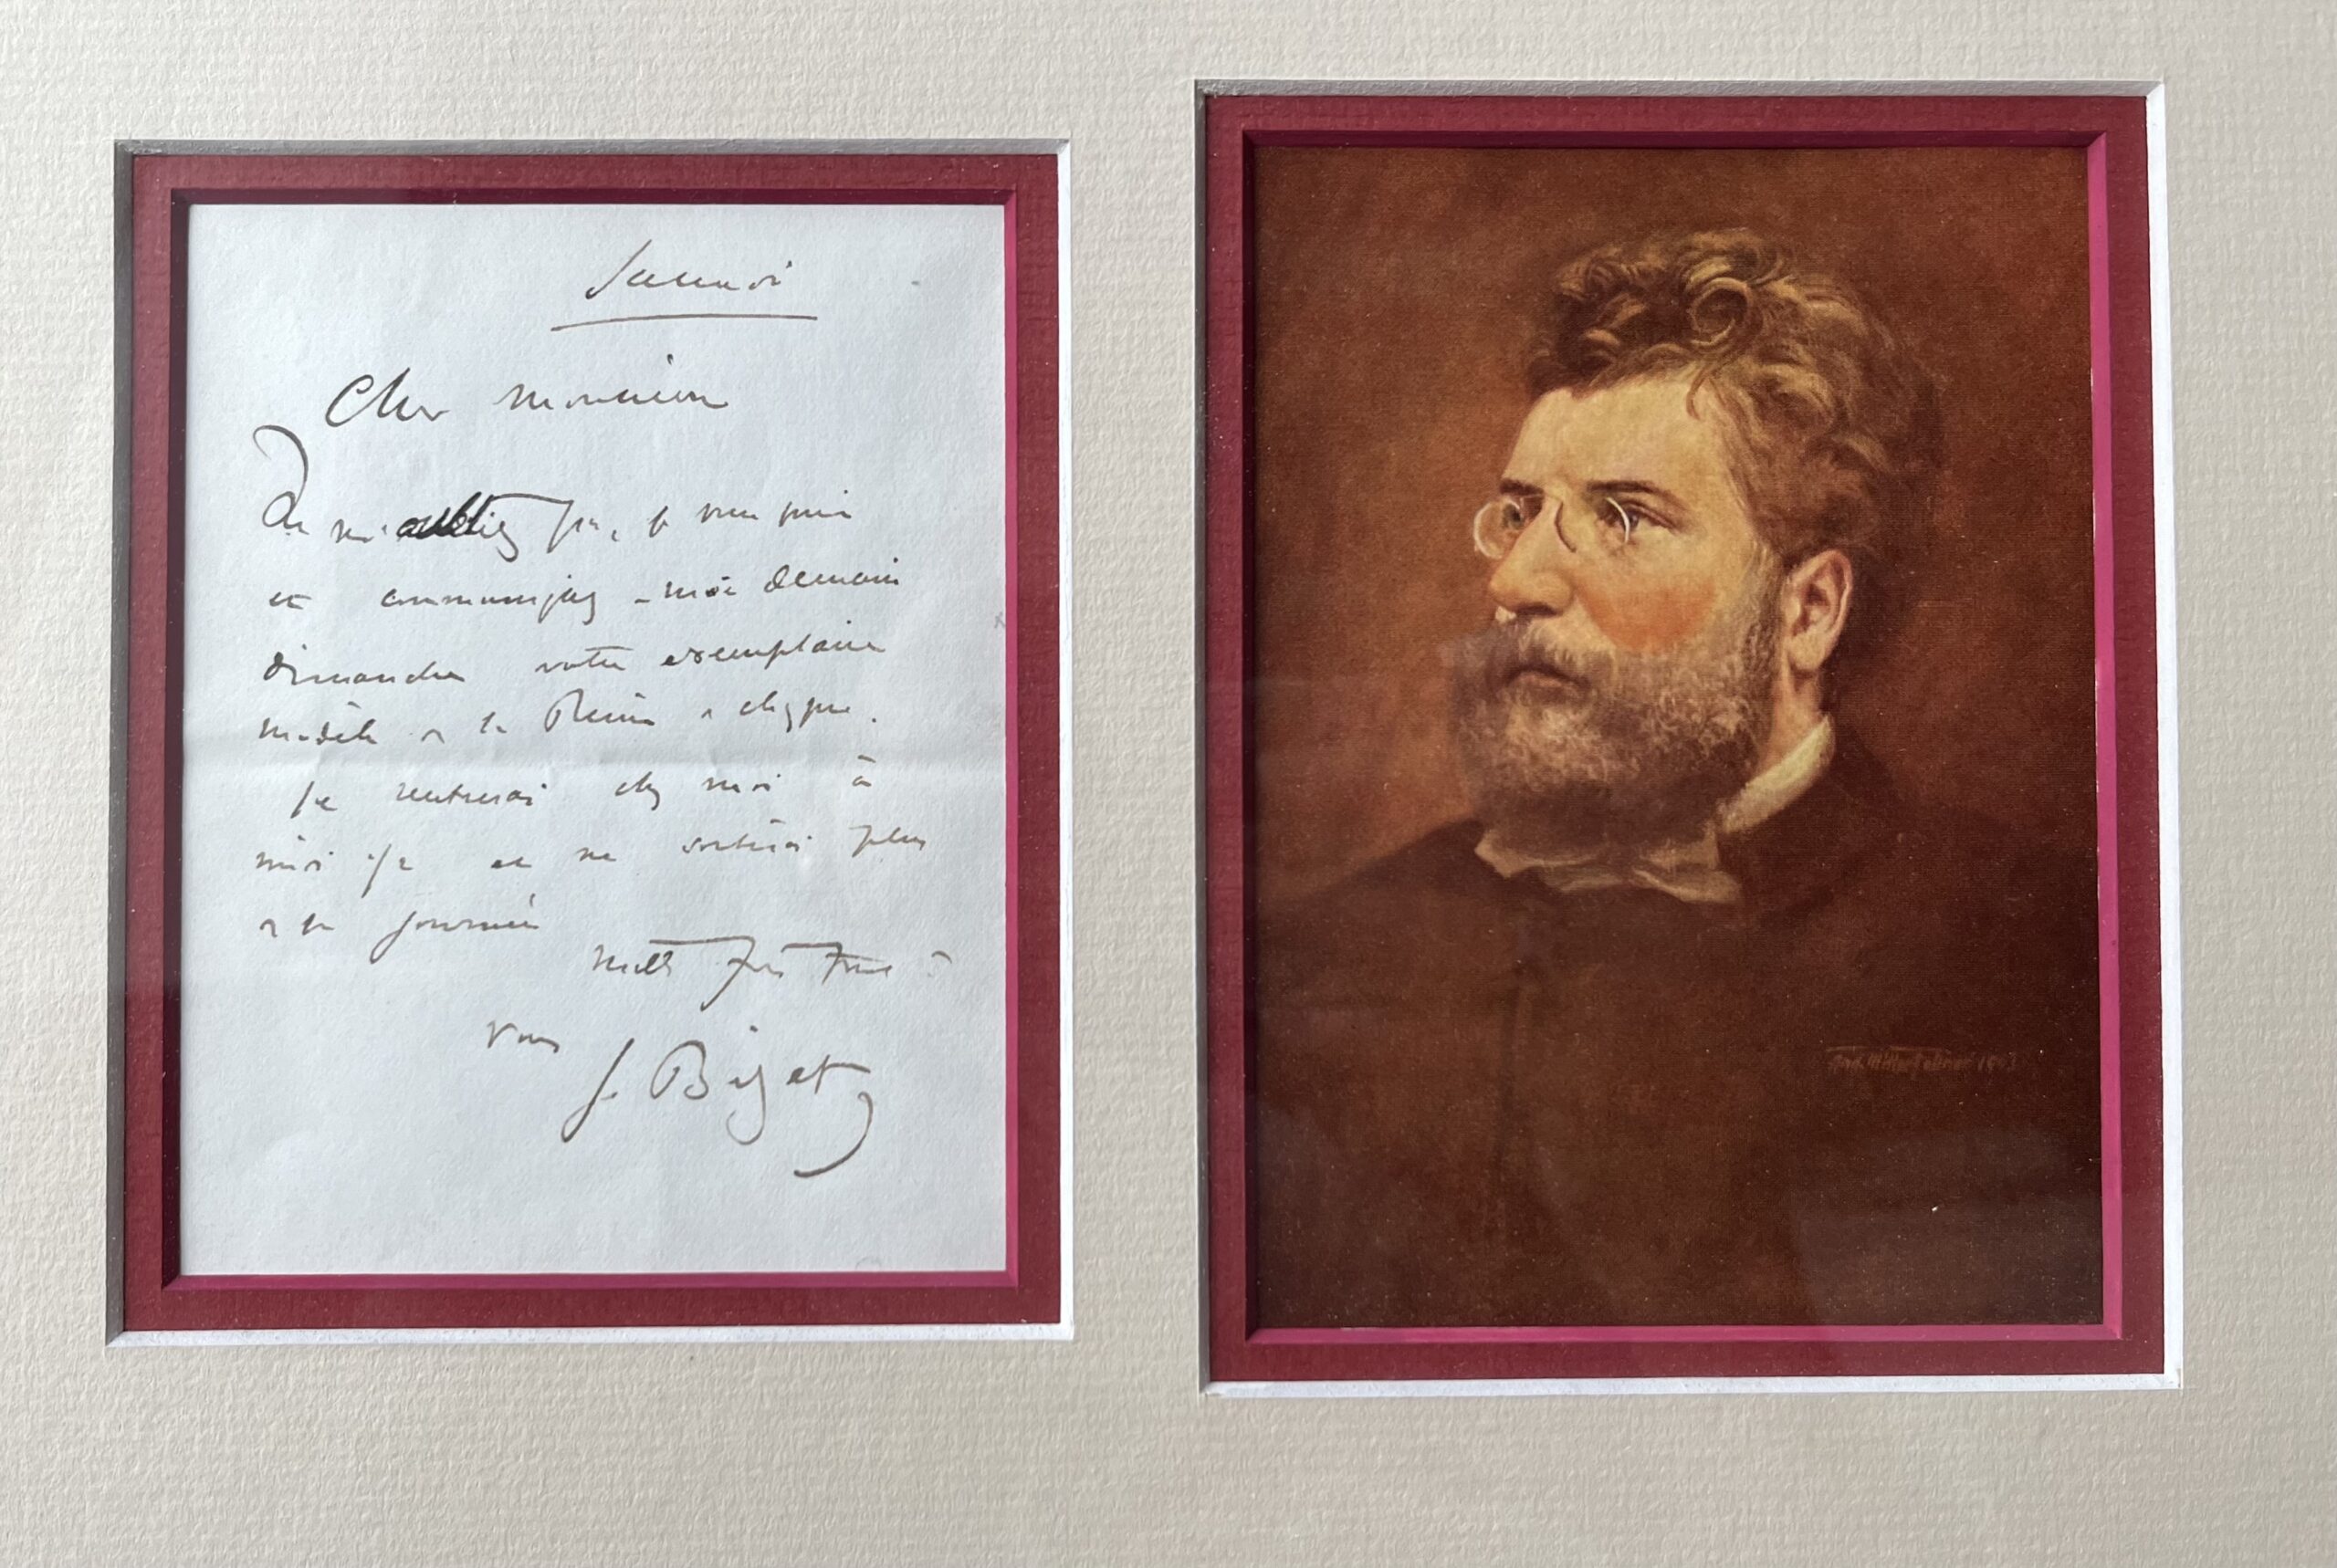 Samedi
Cher monsieur
Ne m'oubliez pas, je vous prie
et communiquez-moi demain
dimanche votre exemplaire
modèle de la Reine de chypre.
Je rentrerai chez moi à
midi ½ et ne sortirai plus
de la journée
mille fois tout à
vous
G. Bizet
1903